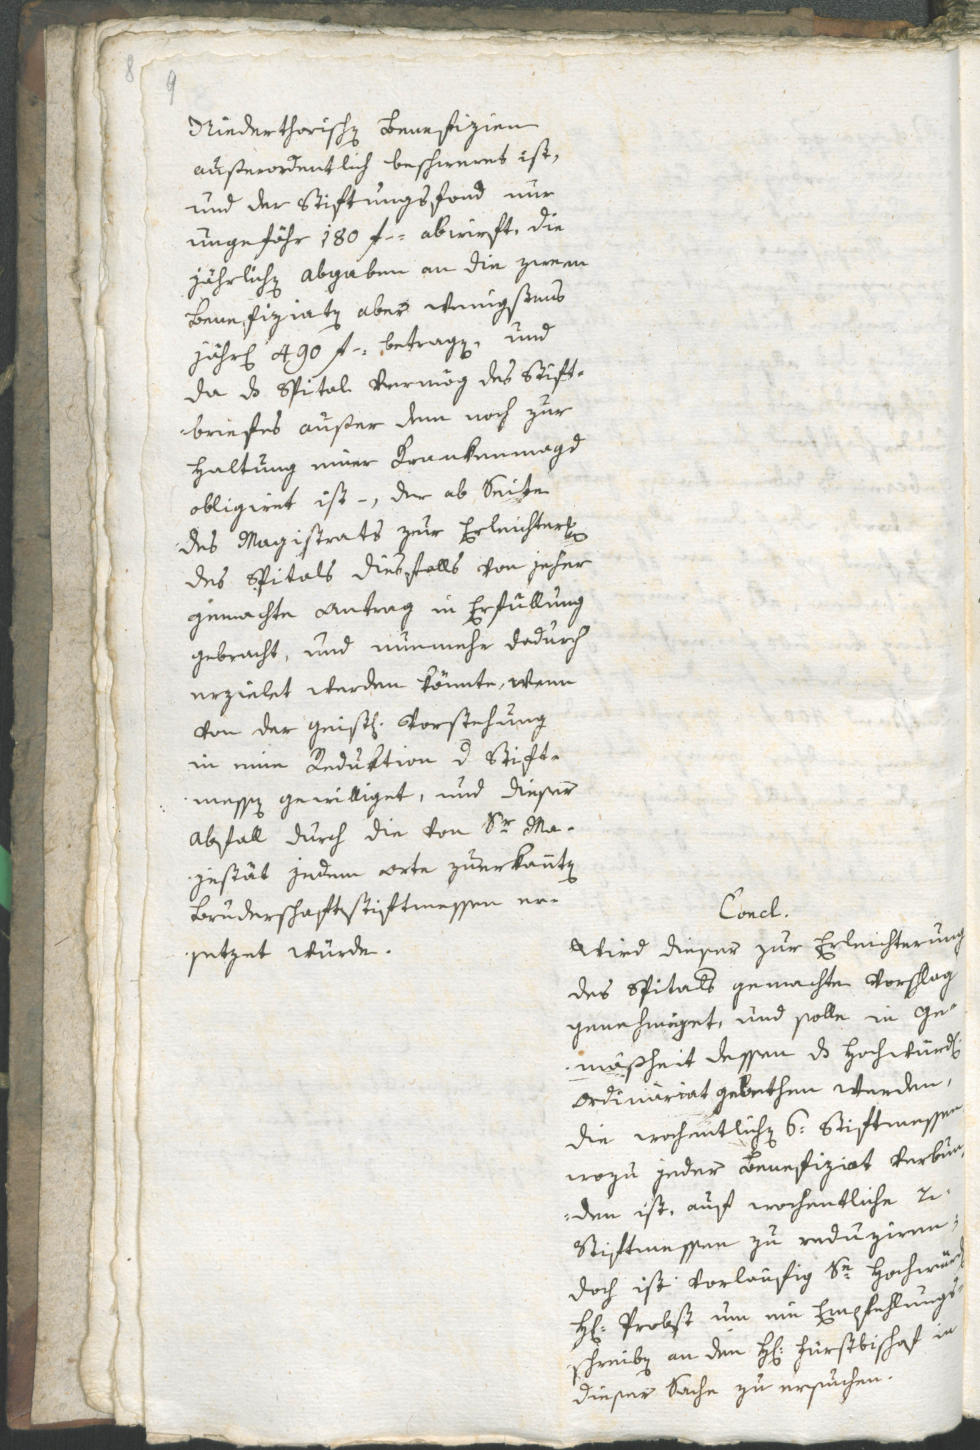 8 9
Niederthorischen Benefizien
außerordentlich beschweret ist,
und der Stiftungsfond nur
ungefähr 180 f -: abwirft, die
jährlichen Abgaben an die zween
Benefiziaten aber wenigstens
jährl 490 f -: betragen, und
da ds Spital vermög des Stift-
briefes außer dem noch zur
Haltung einer Krankenmagd
obligiret ist -, der ab Seite
des Magistrats zur Erleichterung
des Spitals diesfalls von jeher
gemachte Antrag in Erfüllung
gebracht, und nunmehr dadurch
erzielet werden könnte, wenn
von der geistl. Vorstehung
in eine Reduktion d Stift-
messen gewilliget, und dieser
Abfall durch die von Sr Ma-
jestät jedem Orte zuerkannten
Bruderschaftsstiftmessen er-
setzet würde.
Concl.
Wird dieser zur Erleichterung
des Spitals gemachte Vorschlag
genehmiget, und solle in Ge-
mäßheit dessen ds Hochwürdl
Ordinariat gebethen werden,
die wochentlichen 6: Stiftmessen
wozu jeder Benefiziat verbun-
den ist, auf wochentliche 2
Stiftmessen zu reduziren,
doch ist vorläufig Sr Hochwürd
H: Probst um ein Empfehlungs-
schreiben an den H: Fürstbischof in
dieser Sache zu ersuchen.